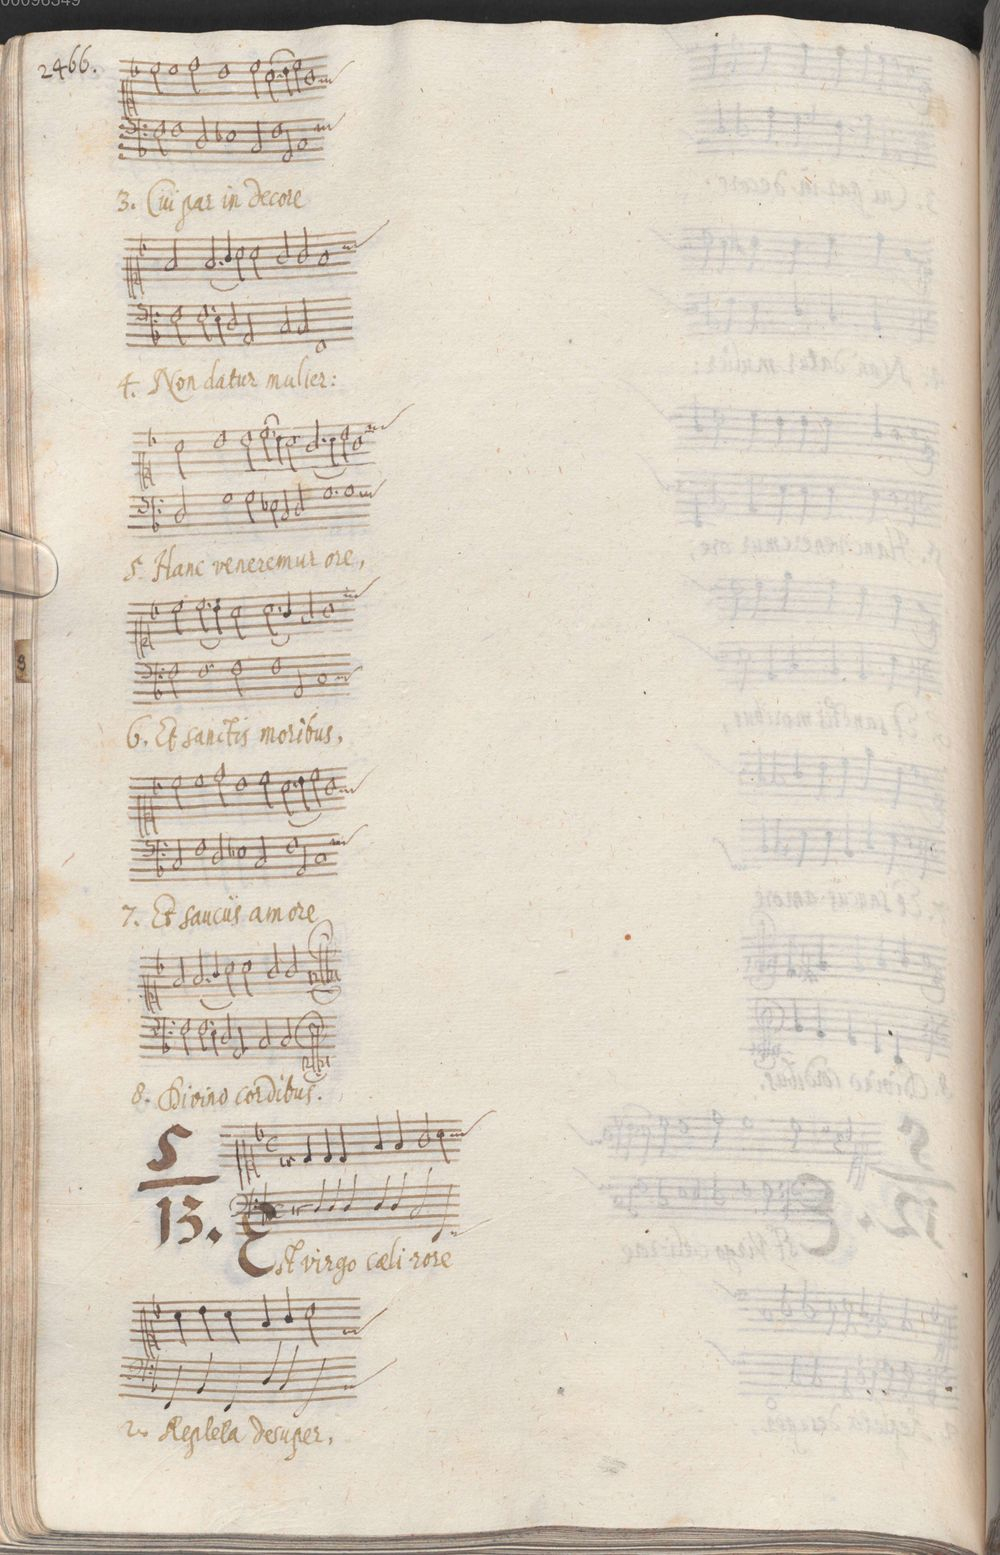 2466.
3. Cui par in decore
4. Non datur mulier:
5. Hanc veneremur ore,
6. Et sanctis moribus,
7. Et sauciis amore
8. Divino cordibus.
5
13.
Est virgo cæli rore
2. Repleta desuper,